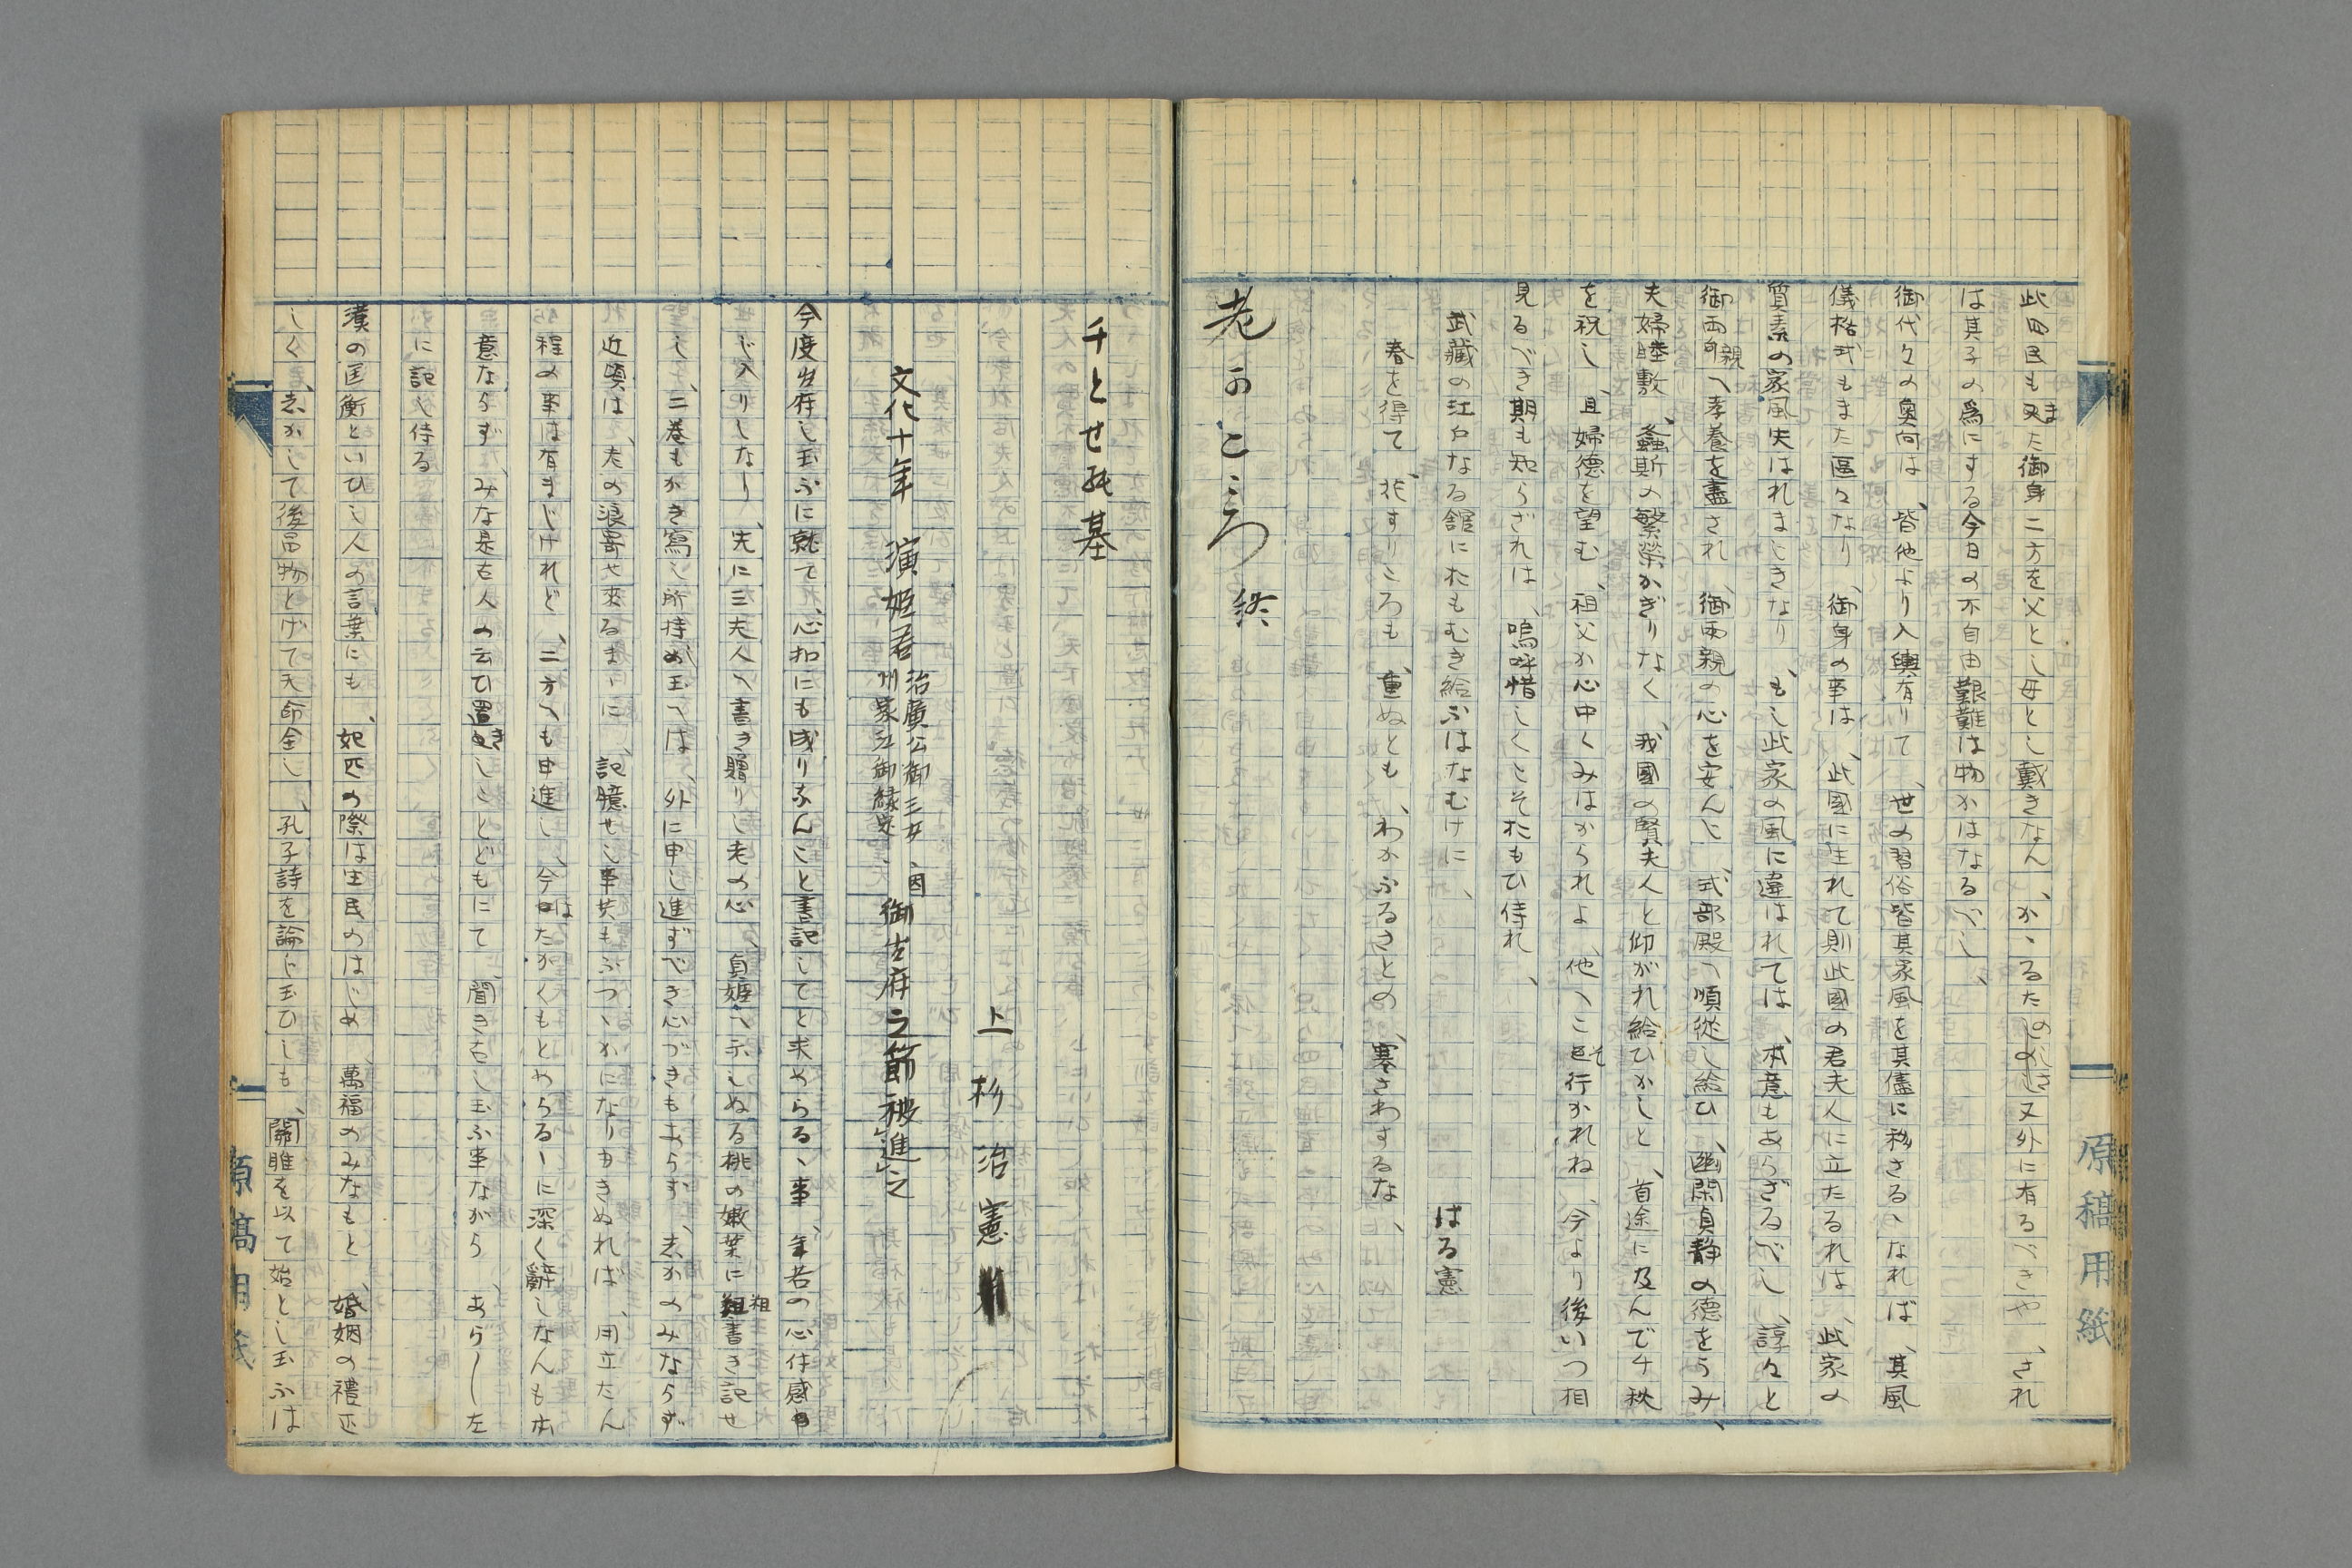 此四民も又また御身二方を父とし母とし戴きなん、かゝるた又外に有るべきや、され
は其子の爲にする今日の不自由艱難は物かはなるべし、
御代々の奥向は、皆他より入輿有りて、世の習俗皆其家風を其儘に移さるゝなれば、其風
儀格式もまた區々なり、御身の事は、此國に生れて則此國の君夫人に立たるれは、此家の
質素の家風失はれまじきなり、もし此家の風に違はれては、本意もあらざるべし、諄々と
御両親へ孝養を盡され、御両親の心を安んじ、式部殿へ順從し給ひ、幽閑貞静の德をうみ、
夫婦睦敷、螽斯の繁榮かぎりなく、我國の賢夫人と仰がれ給ひかしと、首途に及んで千秋
を祝し、且婦德を望む、祖父か心中くみはかられよ、他へこそ行かれね、今より後いつ相
見るべき期も知らざれは、嗚呼惜しくとそたもひ侍れ、
武藏の江戸なる館にたもむき給ふはなむけに、
はる憲
春を得て、花すりころも、重ぬとも、わかふるさとの、寒さわするな、
老のこころ 終
千とせの基
上杉治憲
文化十年 演姫君 治廣公御三女、因州家江御縁組、御出府之節被進之
今度出府し玉ふに就て、心扣にも成りなんこと書記してと求めらるゝ事、年若の心付感
じ入りしなり、先に三夫人へ書き贈りし老の心、貞姫へ示しぬる桃の嫩葉に粗書き記せ
し、二巻もかき寫し所持め玉へは、外に申し進ずべき心づきもあらず、志かのみならず
近頃は、老の浪寄せ來るまゝに、記臆せし事共もふつゝかになりゆきぬれば、用立たん
程の事は有まじけれど、二方へも申進し、今はたかくもとめらるゝに深く辭しなんも本
意ならず、みな是古人の云ひ置きしことどもにて、聞きをし玉ふ事ながら、あらし左
に記し侍る
漢の匡衡といひし人の言葉にも、妃匹の際は生民のはじめ、萬福のみなもと、婚姻の禮正
しく、志かして後品物とげて天命全し、孔子詩を論じ玉ひしも、關雎を以て始とし玉ふは
原稿用紙
原稿用紙